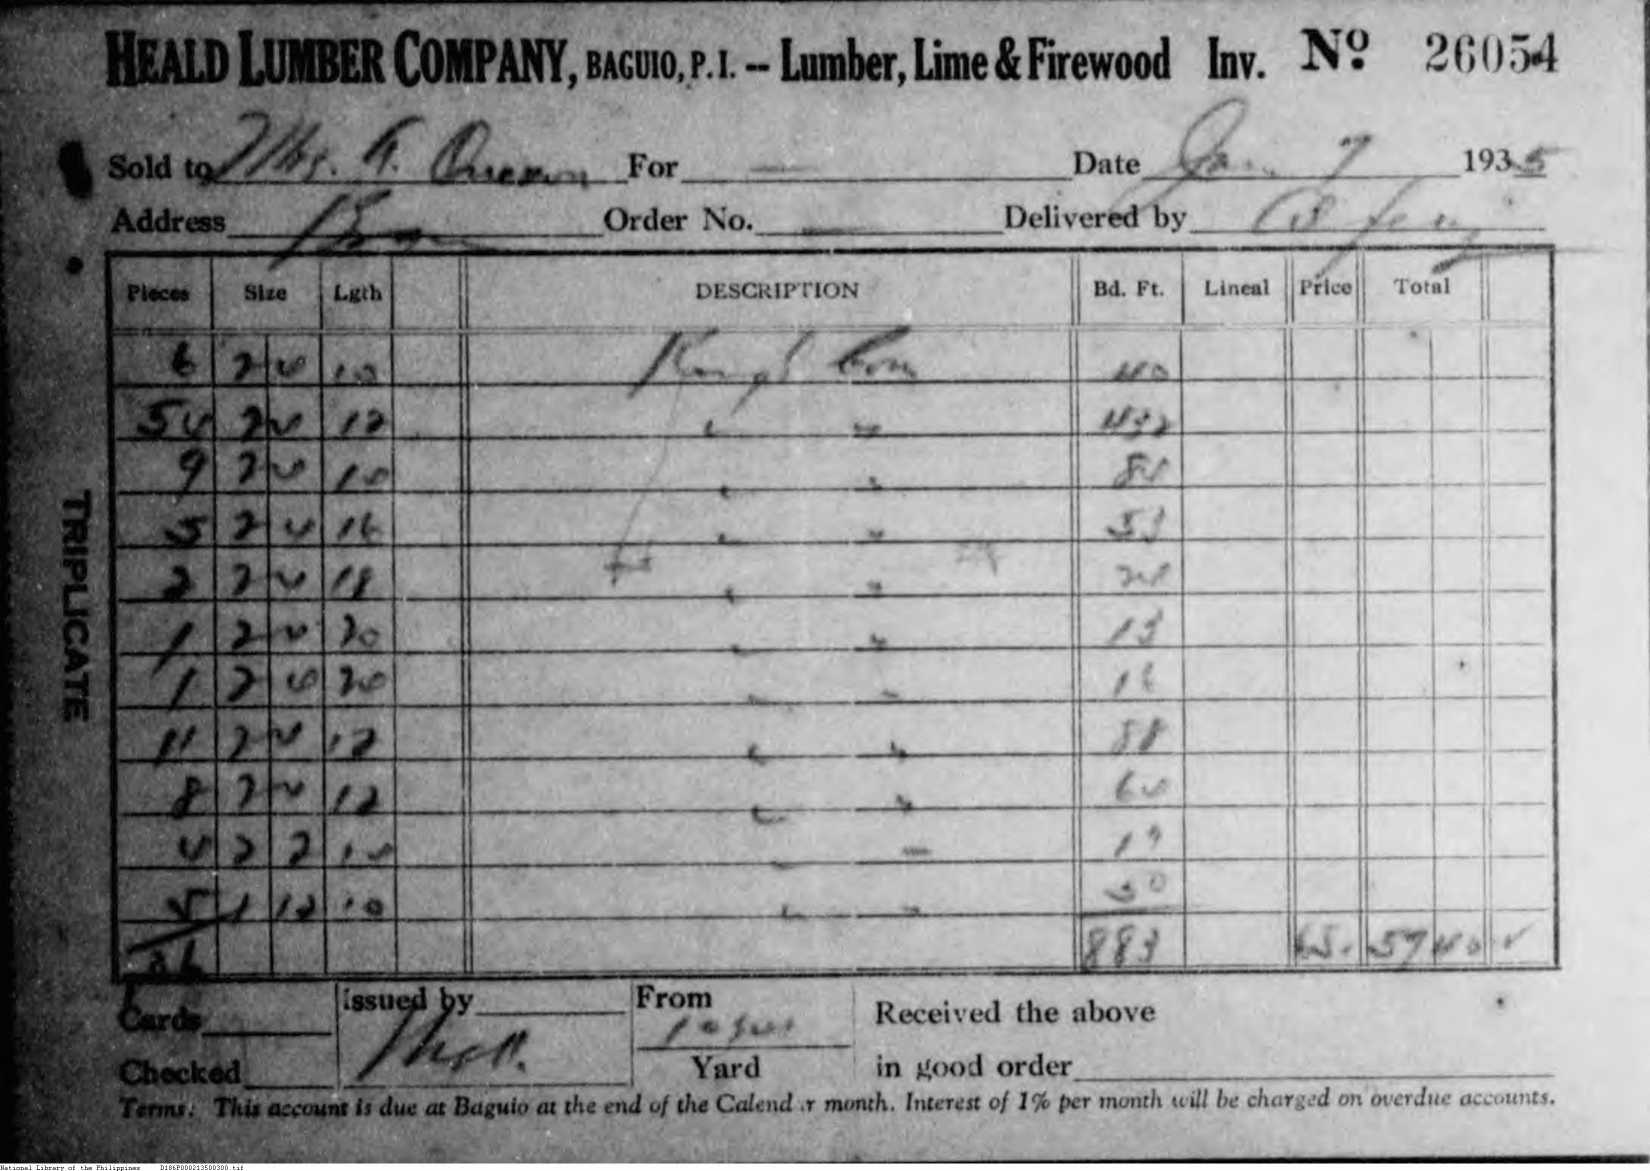 HEALD LUMBER COMPANY, BAGUIO, P. I. -- Lumber, Lime & Firewood Inv. Nº 26054
Sold to Mrs. A. For — Date Jan. 7 1935
Address Order No. — Delivered by
Pieces Size Lgth DESCRIPTION Bd. Ft. Lineal Price Total
6 2 4 10 Rough Com 40
54 2 4 12 " " 432
9 2 4 " "
5 2 4 16 " " 53
2 2 4 18 " " 24
1 2 4 20 " " 13
1 2 " " 16
11 2 4 12 " " 88
8 2 4 12 " " 64
4 2 2 " "
5 1 12 10 " " 50
883 65. 57 40
TRIPLICATE
Cards issued by From
Received the above
Checked Yard in good order
Terms: This account is due at Baguio at the end of the Calend r month. Interest of 1% per month will be charged on overdue accounts.
National Library of the Philippines D186P000213500300.tif